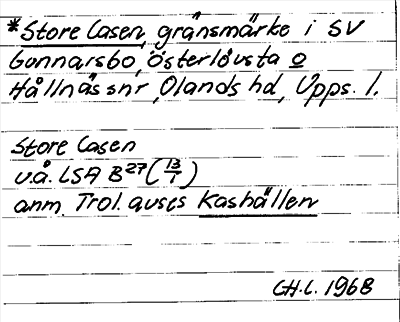 *Store Casen, gränsmärke i SV
Gunnarsbo, Österlövsta o
Hållnäs snr, Olands hd, Upps. l.
Store Casen
u.å. LSA B27 (13/1)
anm. Trol. avses Kashällen
CH.L. 1968